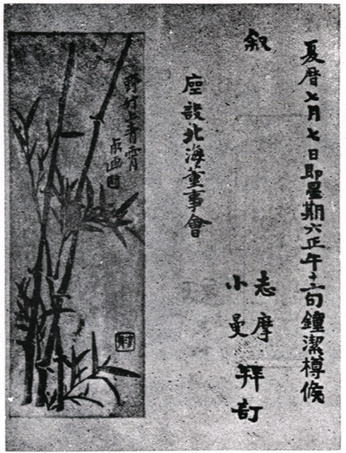 夏曆七月七日即星期六正午十二句鐘潔樽候
叙
志摩
小曼
拜訂
座設北海董事會
野竹上青霄